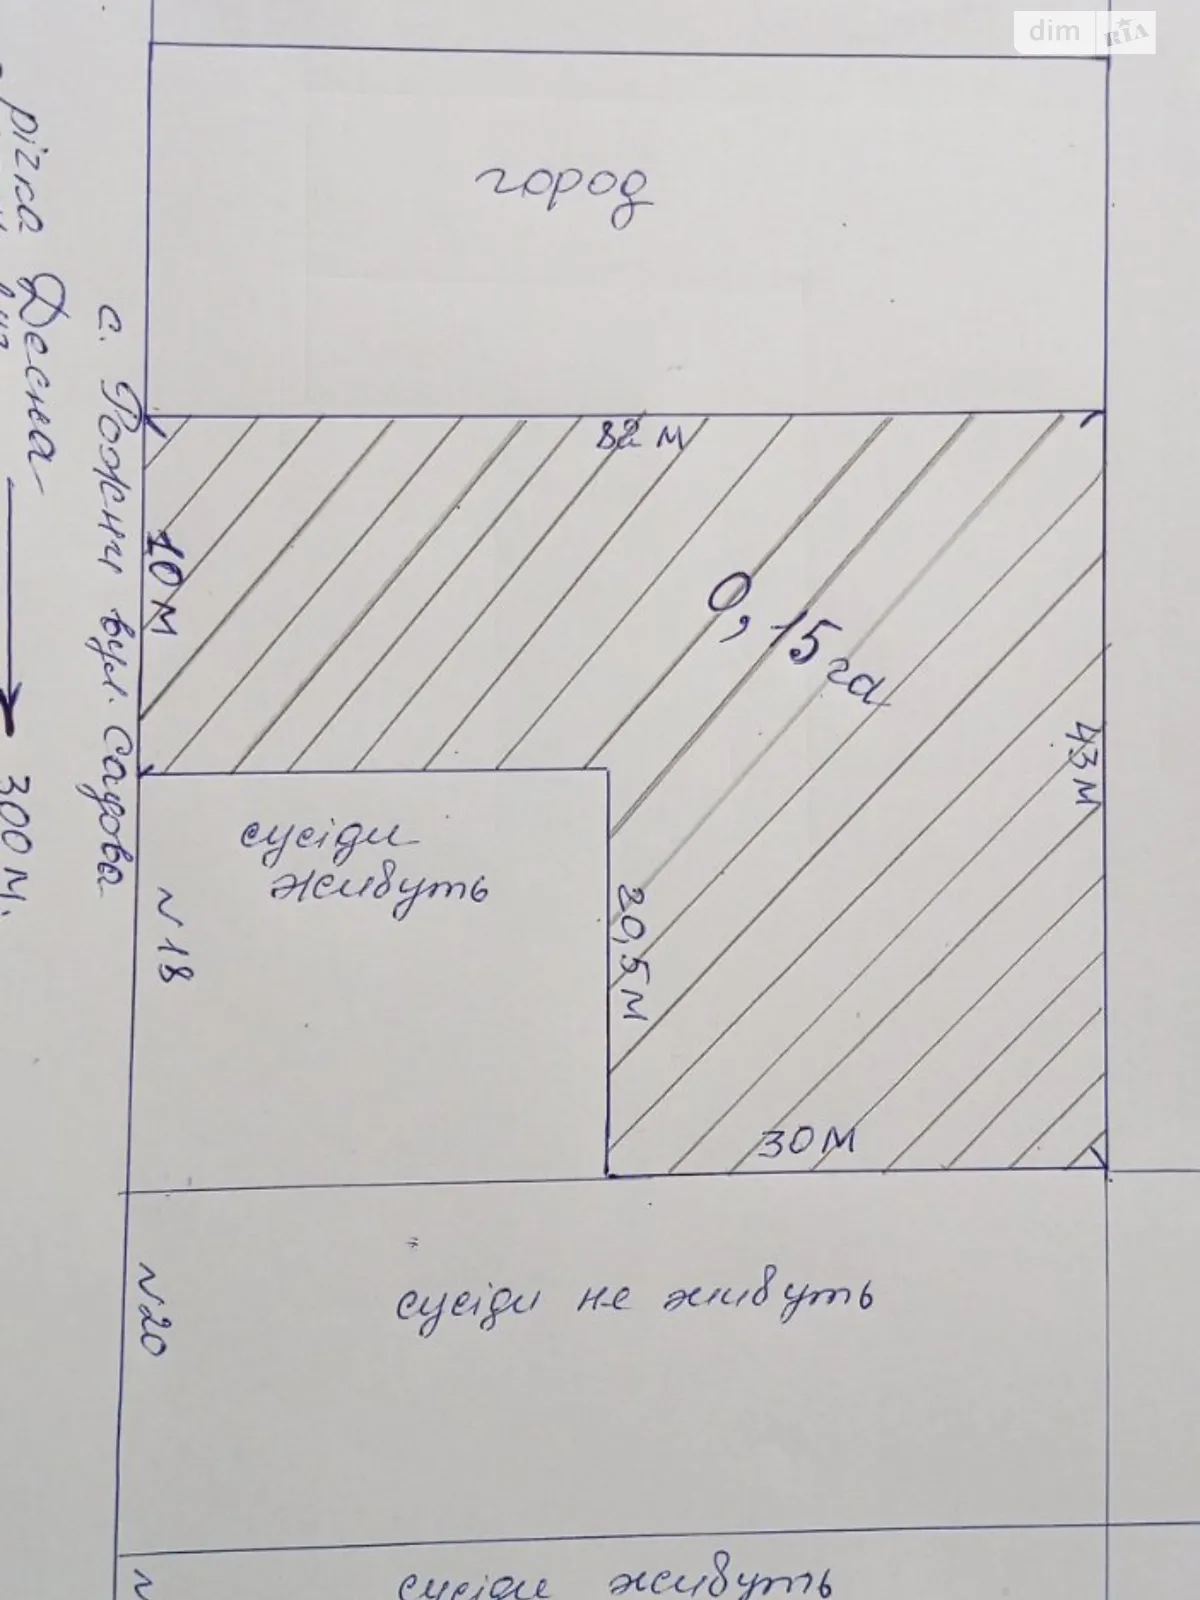 dim RIA
город
річка Десна
300 м.
с. Рожни вул. Садова
82 м
10 м
0,15 га
43 м
сусіди
живуть
N 18
20,5 м
30 м
N 20
сусіди не живуть
N
сусіди живуть